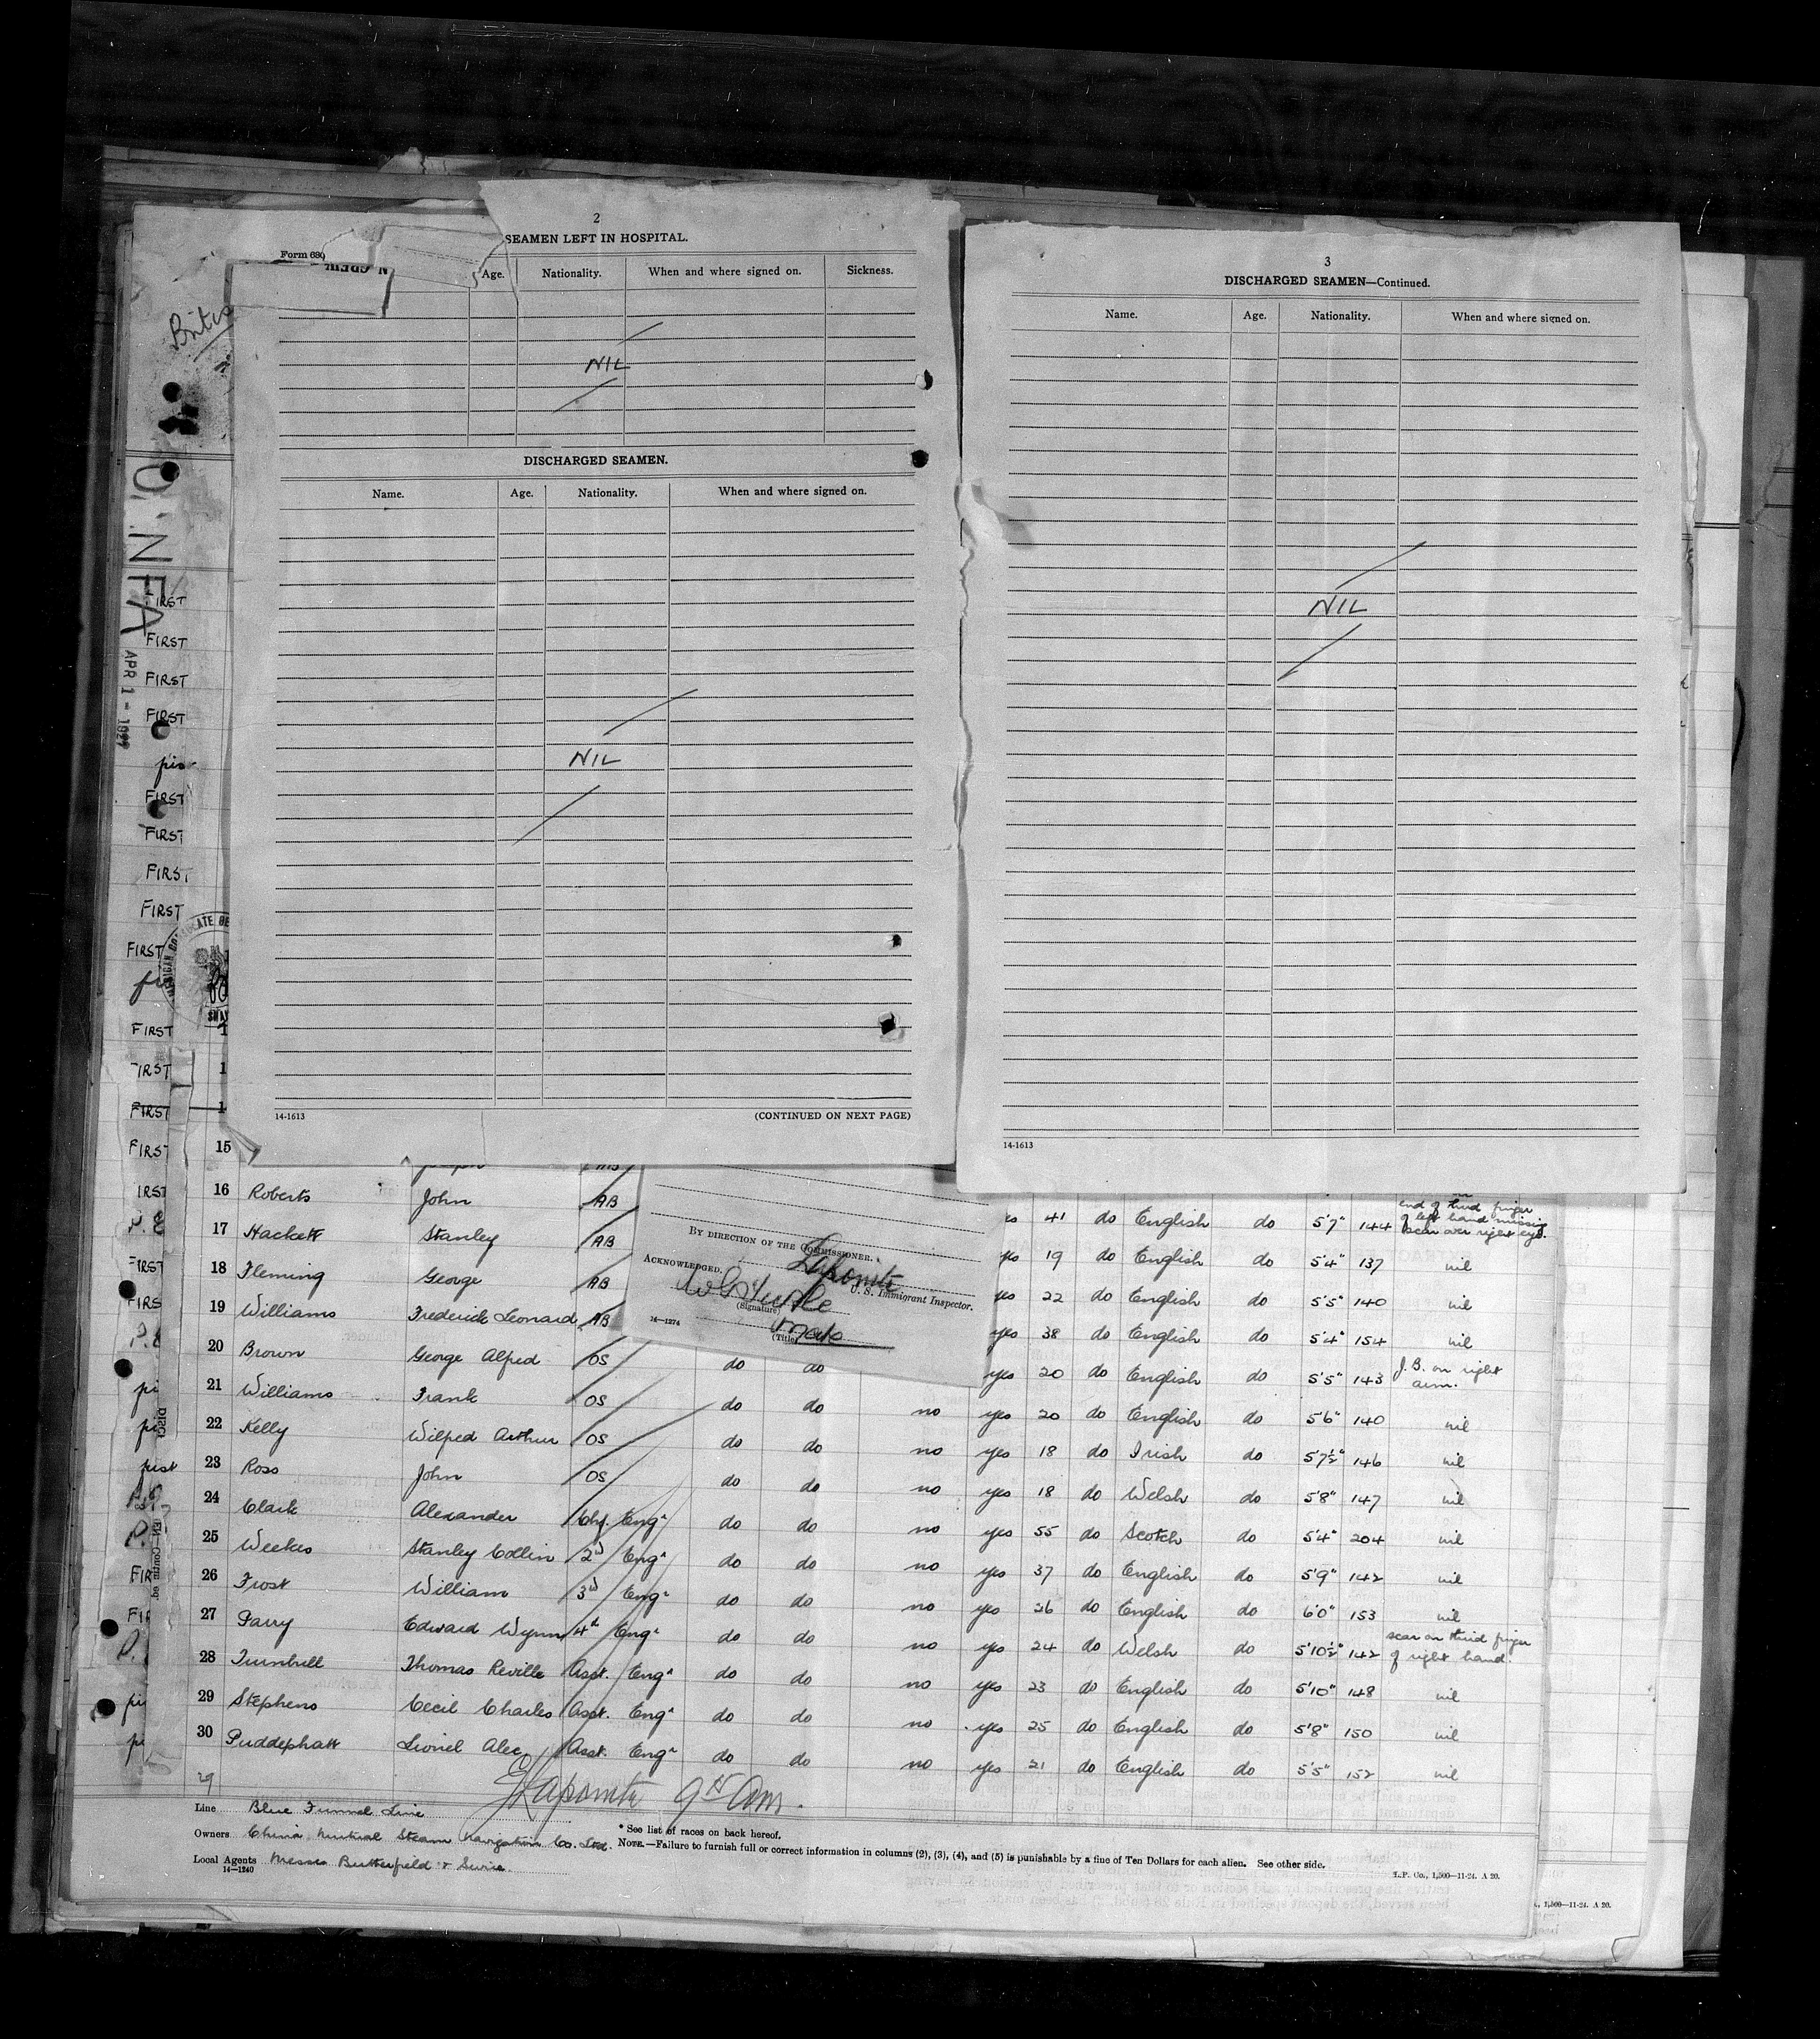 2
SEAMEN LEFT IN HOSPITAL.
Form 680
Age. Nationality. When and where signed on. Sickness.
NIL
DISCHARGED SEAMEN.
Name. Age. Nationality. When and where signed on.
NIL
14-1613 (CONTINUED ON NEXT PAGE)
3
DISCHARGED SEAMEN—Continued.
Name. Age. Nationality. When and where signed on.
NIL
14-1613
APR 1 -
FIRST
FIRST
FIRST
FIRST
FIRST
FIRST
FIRST
FIRST
FIRST
FIRST
FIRST
FIRST
15
16 Roberts John AB 41 do English do 5'7" 144 end of third finger of left hand missing scar over right eye.
17 Hackett Stanley AB yes 19 do English do 5'4" 137 nil
18 Fleming George AB yes 22 do English do 5'5" 140 nil
19 Williams Frederick Leonard AB yes 38 do English do 5'4" 154 nil
20 Brown George Alfred OS do do yes 20 do English do 5'5" 143 J.B. on right arm.
21 Williams Frank OS do do no yes 20 do English do 5'6" 140 nil
22 Kelly Wilfred Arthur OS do do no yes 18 do Irish do 5'7½" 146 nil
23 Ross John OS do do no yes 18 do Welsh do 5'8" 147 nil
24 Clark Alexander Chf. Engr do do no yes 55 do Scotch do 5'4" 204 nil
25 Weekes Stanley Collin 2nd Engr do do no yes 37 do English do 5'9" 142 nil
26 Frost William 3rd Engr do do no yes 26 do English do 6'0" 153 nil
27 Parry Edward Wynn 4th Engr do do no yes 24 do Welsh do 5'10½" 142 scar on third finger of right hand
28 Turnbull Thomas Reville Asst. Engr do do no yes 23 do English do 5'10" 148 nil
29 Stephens Cecil Charles Asst. Engr do do no yes 25 do English do 5'8" 150 nil
30 Puddephatt Lionel Alec Asst. Engr do do no yes 21 do English do 5'5" 152 nil
BY DIRECTION OF THE COMMISSIONER.
Lapointe
U. S. Immigrant Inspector.
ACKNOWLEDGED.
(Signature)
14—1274
(Title)
29
Lapointe 9th Am.
Line Blue Funnel Line
Owners China Mutual Steam Navigation Co. Ltd.
Local Agents Messrs Butterfield & Swire.
14—1240
* See list of races on back hereof.
NOTE.—Failure to furnish full or correct information in columns (2), (3), (4), and (5) is punishable by a fine of Ten Dollars for each alien. See other side.
L.P. Co., 1,500—11-24. A 20.
1,500—11-24. A 20.